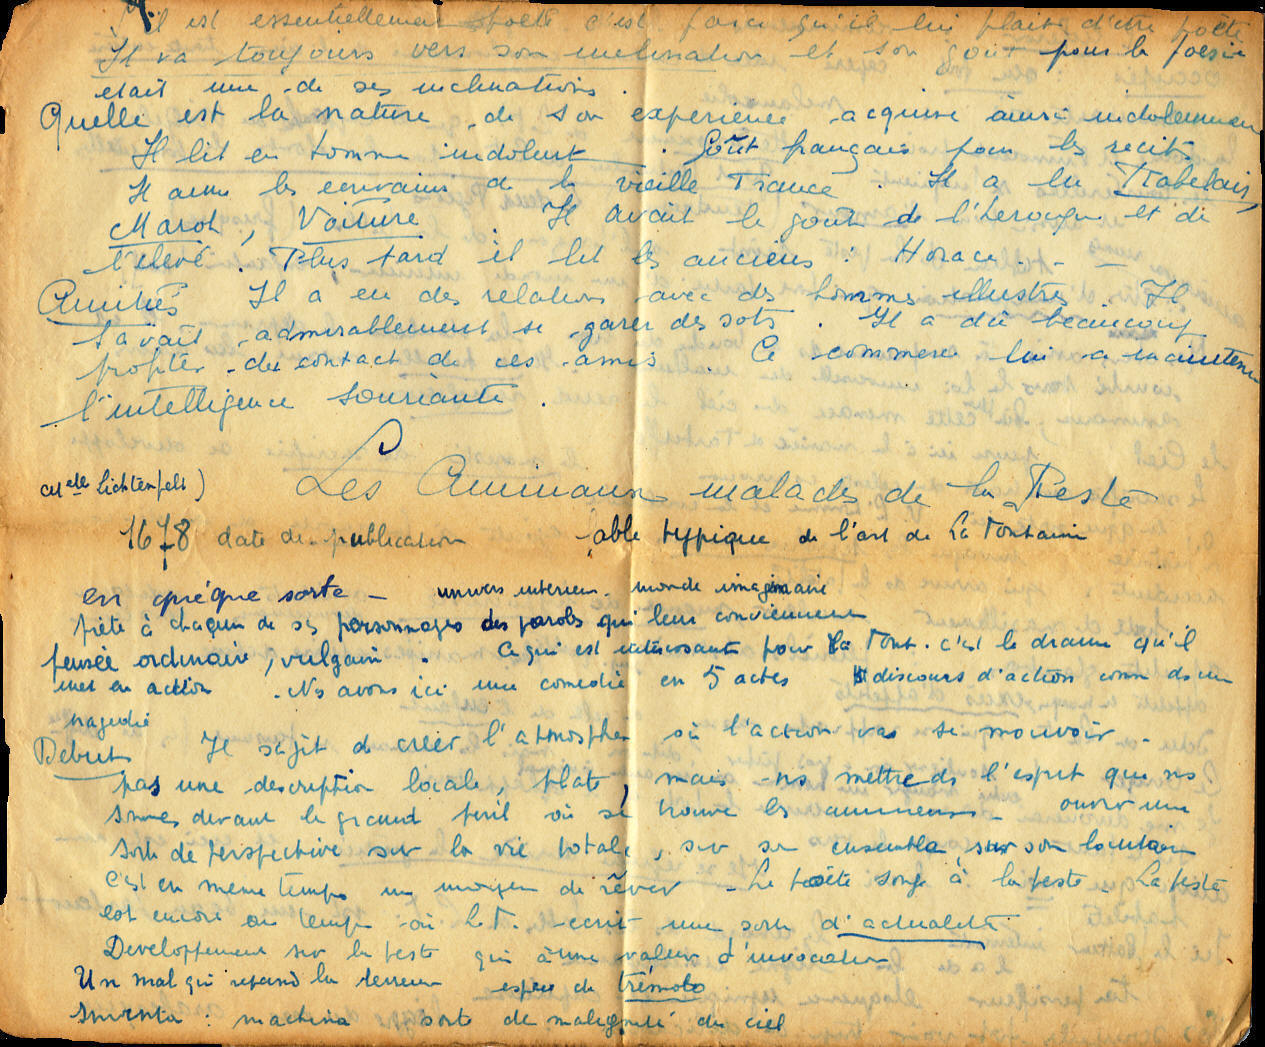 il est essentiellement poète c'est parce qu'il lui plait d'être poète
Il va toujours vers son inclination et son goût pour la poesie
etait une de ses inclinations.
Quelle est la nature de son experience acquise ainsi indolemment
Il lit en homme indolent. Goût français pour les recits
Il aime les ecrivains de la vieille France. Il a lu Rabelais,
Marot, Voiture. Il avait le goût de et di
l'elevé. Plus tard il lit les anciens : Horace. - -
Amitiés Il a eu des relations avec des hommes illustres. Il
savait admirablement se garer des sots. Il a dû beaucoup
profiter du contact de ces amis. Ce commerce lui a maintenu
l'intelligence souriante.
Lichtenfelt) Les Animaux malades de la Peste
1678 date de publication fable typique de l'art de La Fontaine
en quéque sorte - univers interieur - monde imaginaire
prête à chacun de ses personnages des parols qui leur conviennent
pensée ordinaire, vulgaire. Ce qui est interessant pour La Font. c'est le drame qu'il
met en action. Ns avons ici une comedie en 5 actes discours d'action comm ds une
tragedie
Debut Il s'agit de créer l'atmosphere où l'action va se mouvoir -
pas une description locale, plate, mais ns mettre ds l'esprit que ns
sommes devant le grand peril où se trouve les animaux - ouvrir une
sorte de perspective sur la vie totale, sur son ensemble, sur son lointain
c'est en meme temps un moyen de rêver - Le poète songe à la peste - La peste
est encore au temps où L. F. ecrit une sorte d'actualité
Developpement sur la peste qui a une valeur d'invocation
Un mal qui repand la terreur espece de trémolo
Inventa : machina sorte de malignité du ciel